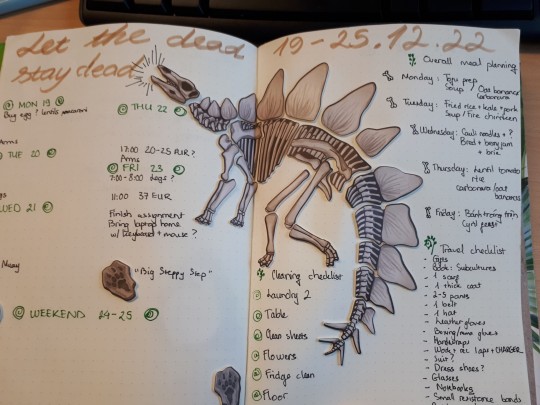 Let the dead
stay dead
MON 19
Bug eyes? lentils macaroni
Arms
TUE 20
WED 21
THU 22
17:00 20-25 EUR?
Arms
FRI 23
7:00-8:00 Legs?
11:00 37 EUR
Finish assignment
Bring laptop home
w/ keyboard + mouse?
"Big Steppy Step"
WEEKEND 24-25
19-25.12.22
Overall meal planning
Monday: Tofu prep
Soup / Oat bananas
carbonara
Tuesday: Fried rice + kale + pork
Soup / Fire chimken
Wednesday: Cauli noodles + ?
Bread + berry jam
+ brie
Thursday: Lentil tomato
rice
carbonara / oat
bananas
Friday: Bánh tráng trộn
Cleaning checklist
Laundry 2
Table
Clean sheets
Flowers
Fridge clean
Floor
Travel checklist
Book: Subcultures
- 1 scarf
- 1 thick coat
- 2-5 pants
- 1 belt
- 1 hat
- Leather gloves
- Boxing/mma gloves
- Handwraps
- Work + rec laps + CHARGER
- Suit?
- Dress shoes?
- Glasses
- Notebooks
- Small resistance bands